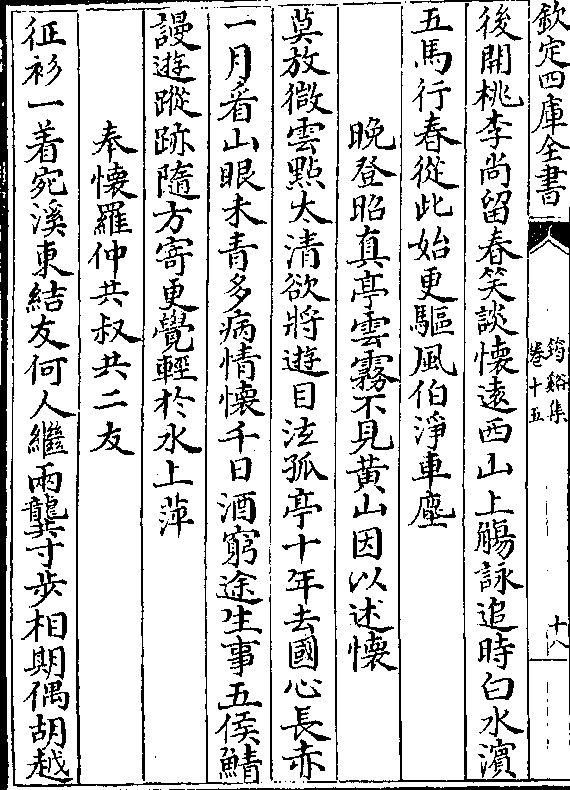 欽定四庫全書
筠谿集
卷十五
十八
後開桃李尚留春笑談懐逺西山上觴詠追時白水濵
五馬行春從此始更驅風伯淨車塵
晚登昭真亭雲霧不見黄山因以述懐
莫放微雲㸃太清欲將遊目泫孤亭十年去國心長赤
一月看山眼未青多病情懐千日酒窮途生事五侯鯖
謾遊蹤跡隨方寄更覺輕於水上萍
奉懐羅仲共叔共二友
征衫一着宛溪東結友何人繼兩龔寸歩相期偶胡越